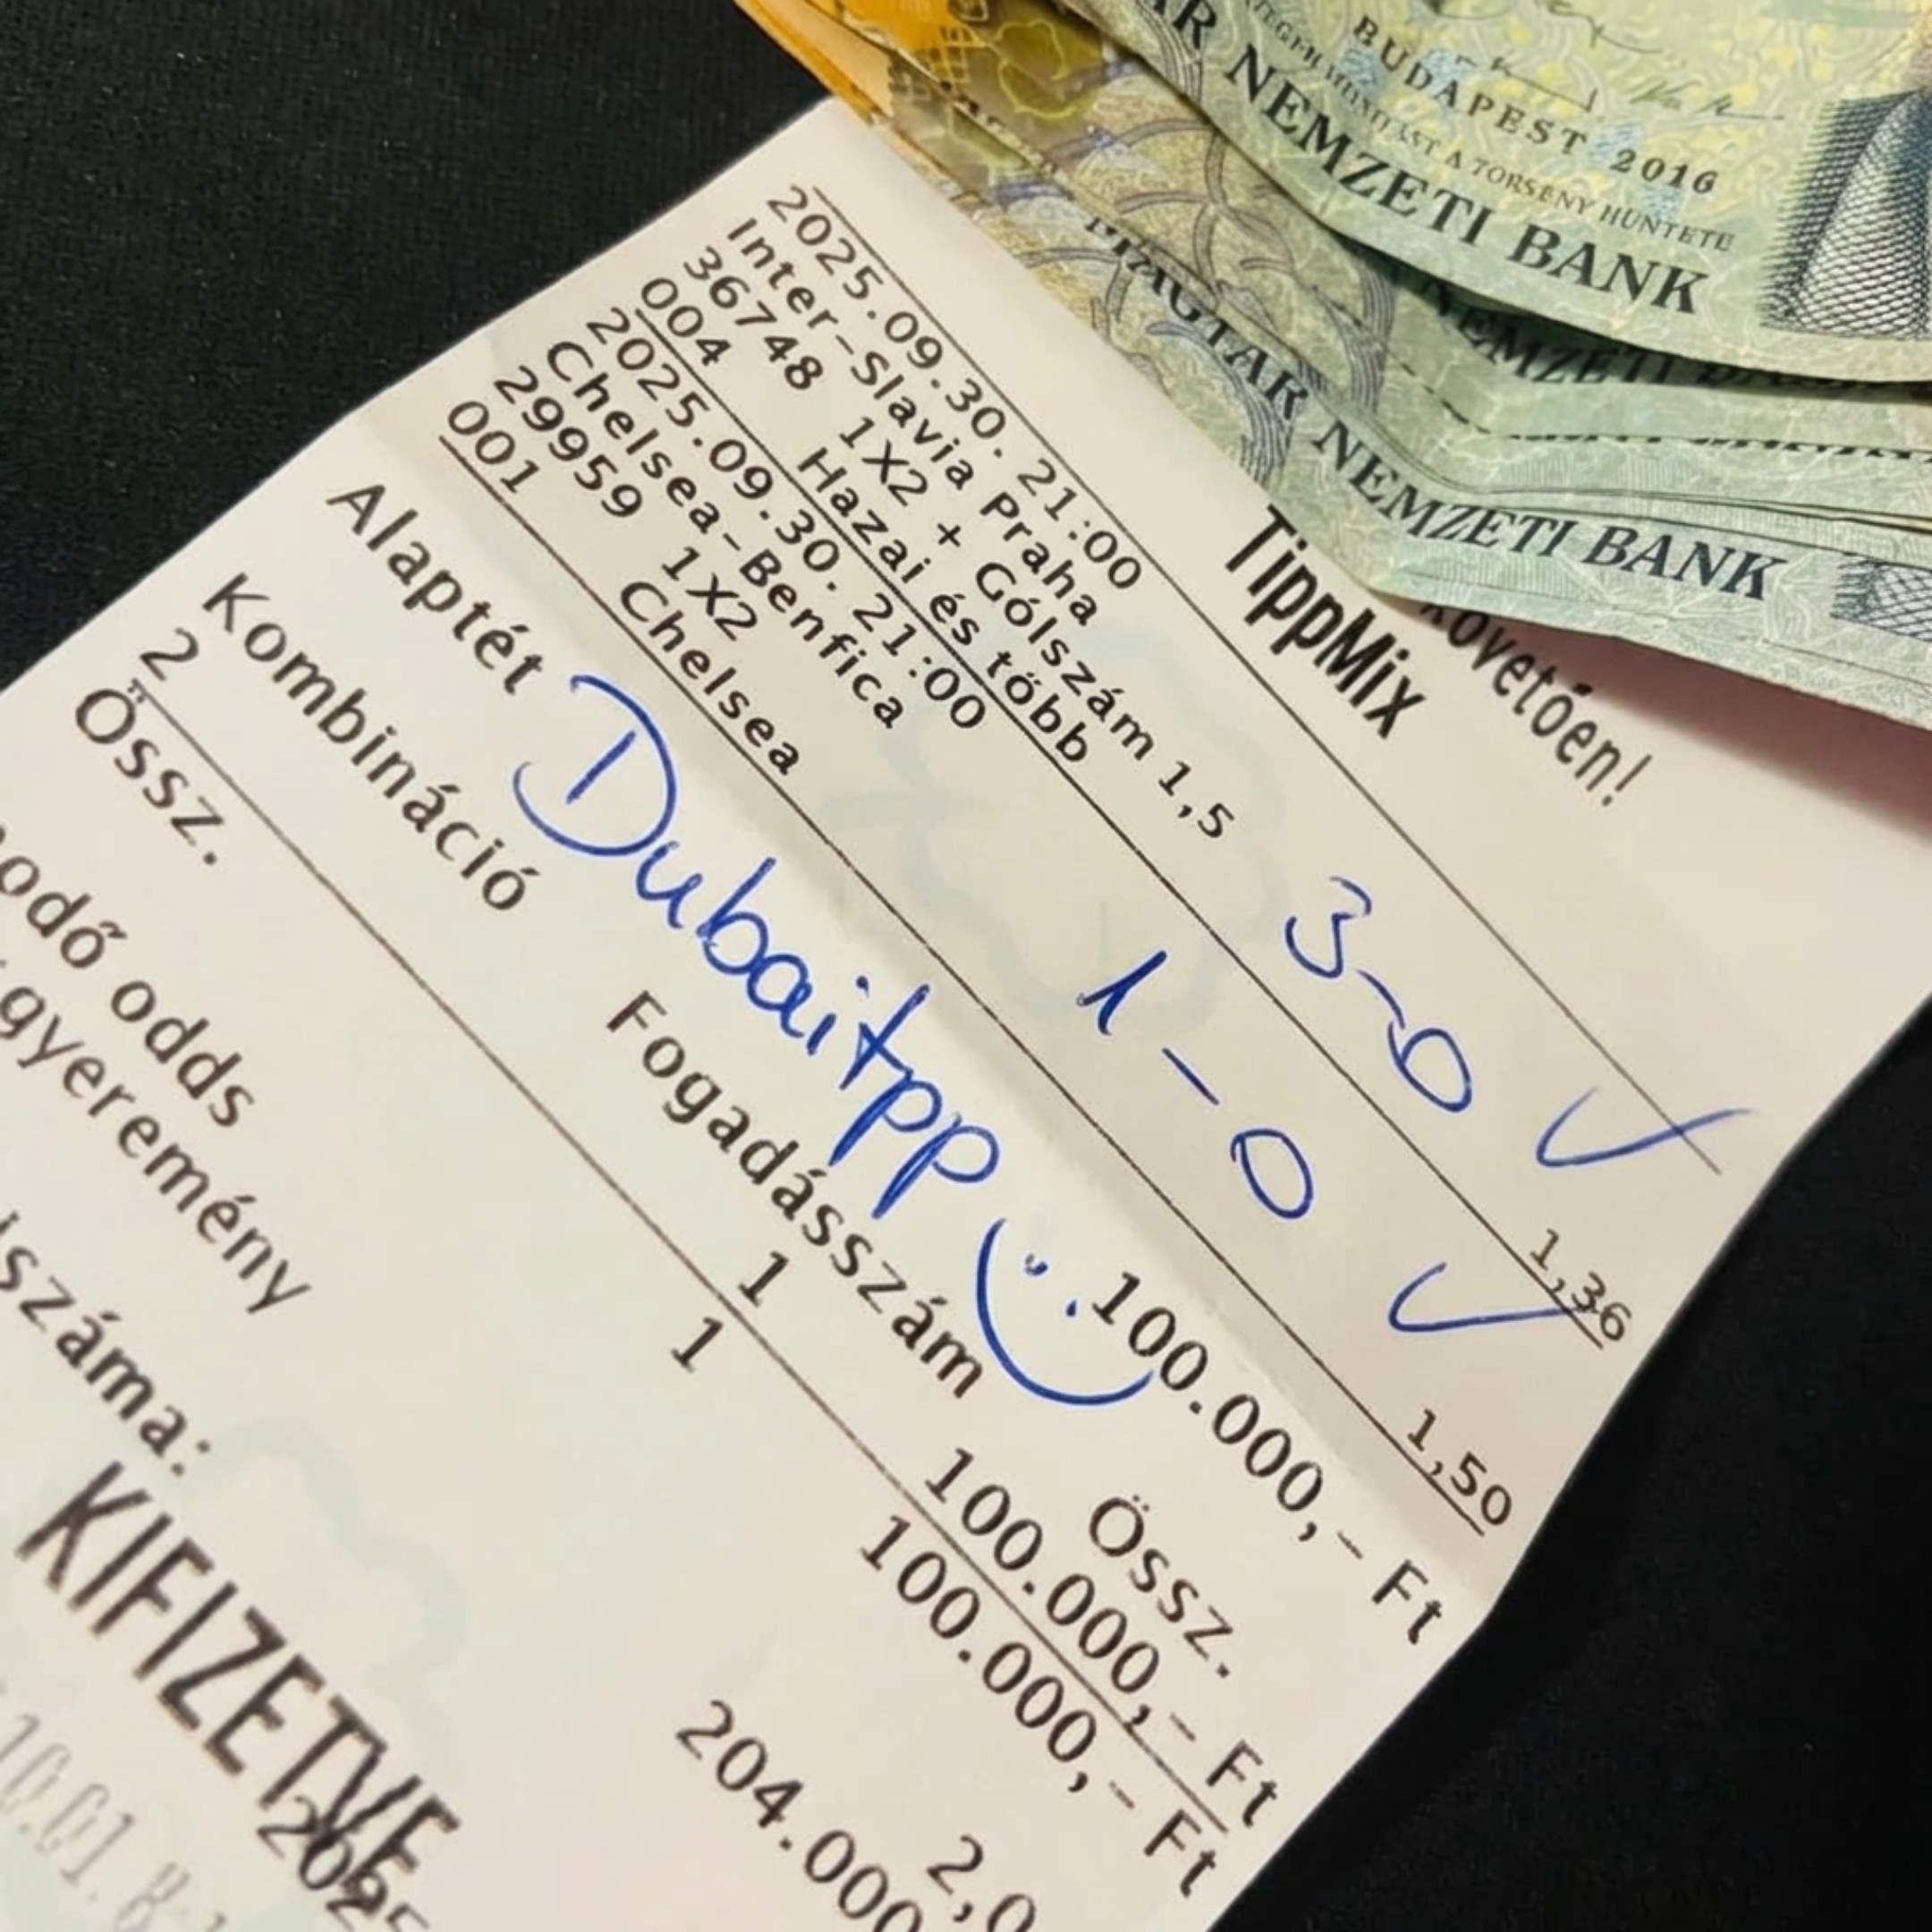 BUDAPEST 2016
NEMZETI BANK
MAGYAR NEMZETI BANK
követően!
TippMix
2025.09.30. 21:00
Inter-Slavia Praha
36748 1X2 + Gólszám 1,5
004 Hazai és több 1,36
3-0 ✓
2025.09.30. 21:00
Chelsea-Benfica
29959 1X2
001 Chelsea 1,50
1-0 ✓
Alaptét 100.000,- Ft
Dubaitpp
Kombináció Fogadásszám Össz.
2 1 100.000,- Ft
Össz. 1 100.000,- Ft
odds 2,0
204.000
KIFIZETVE
2025